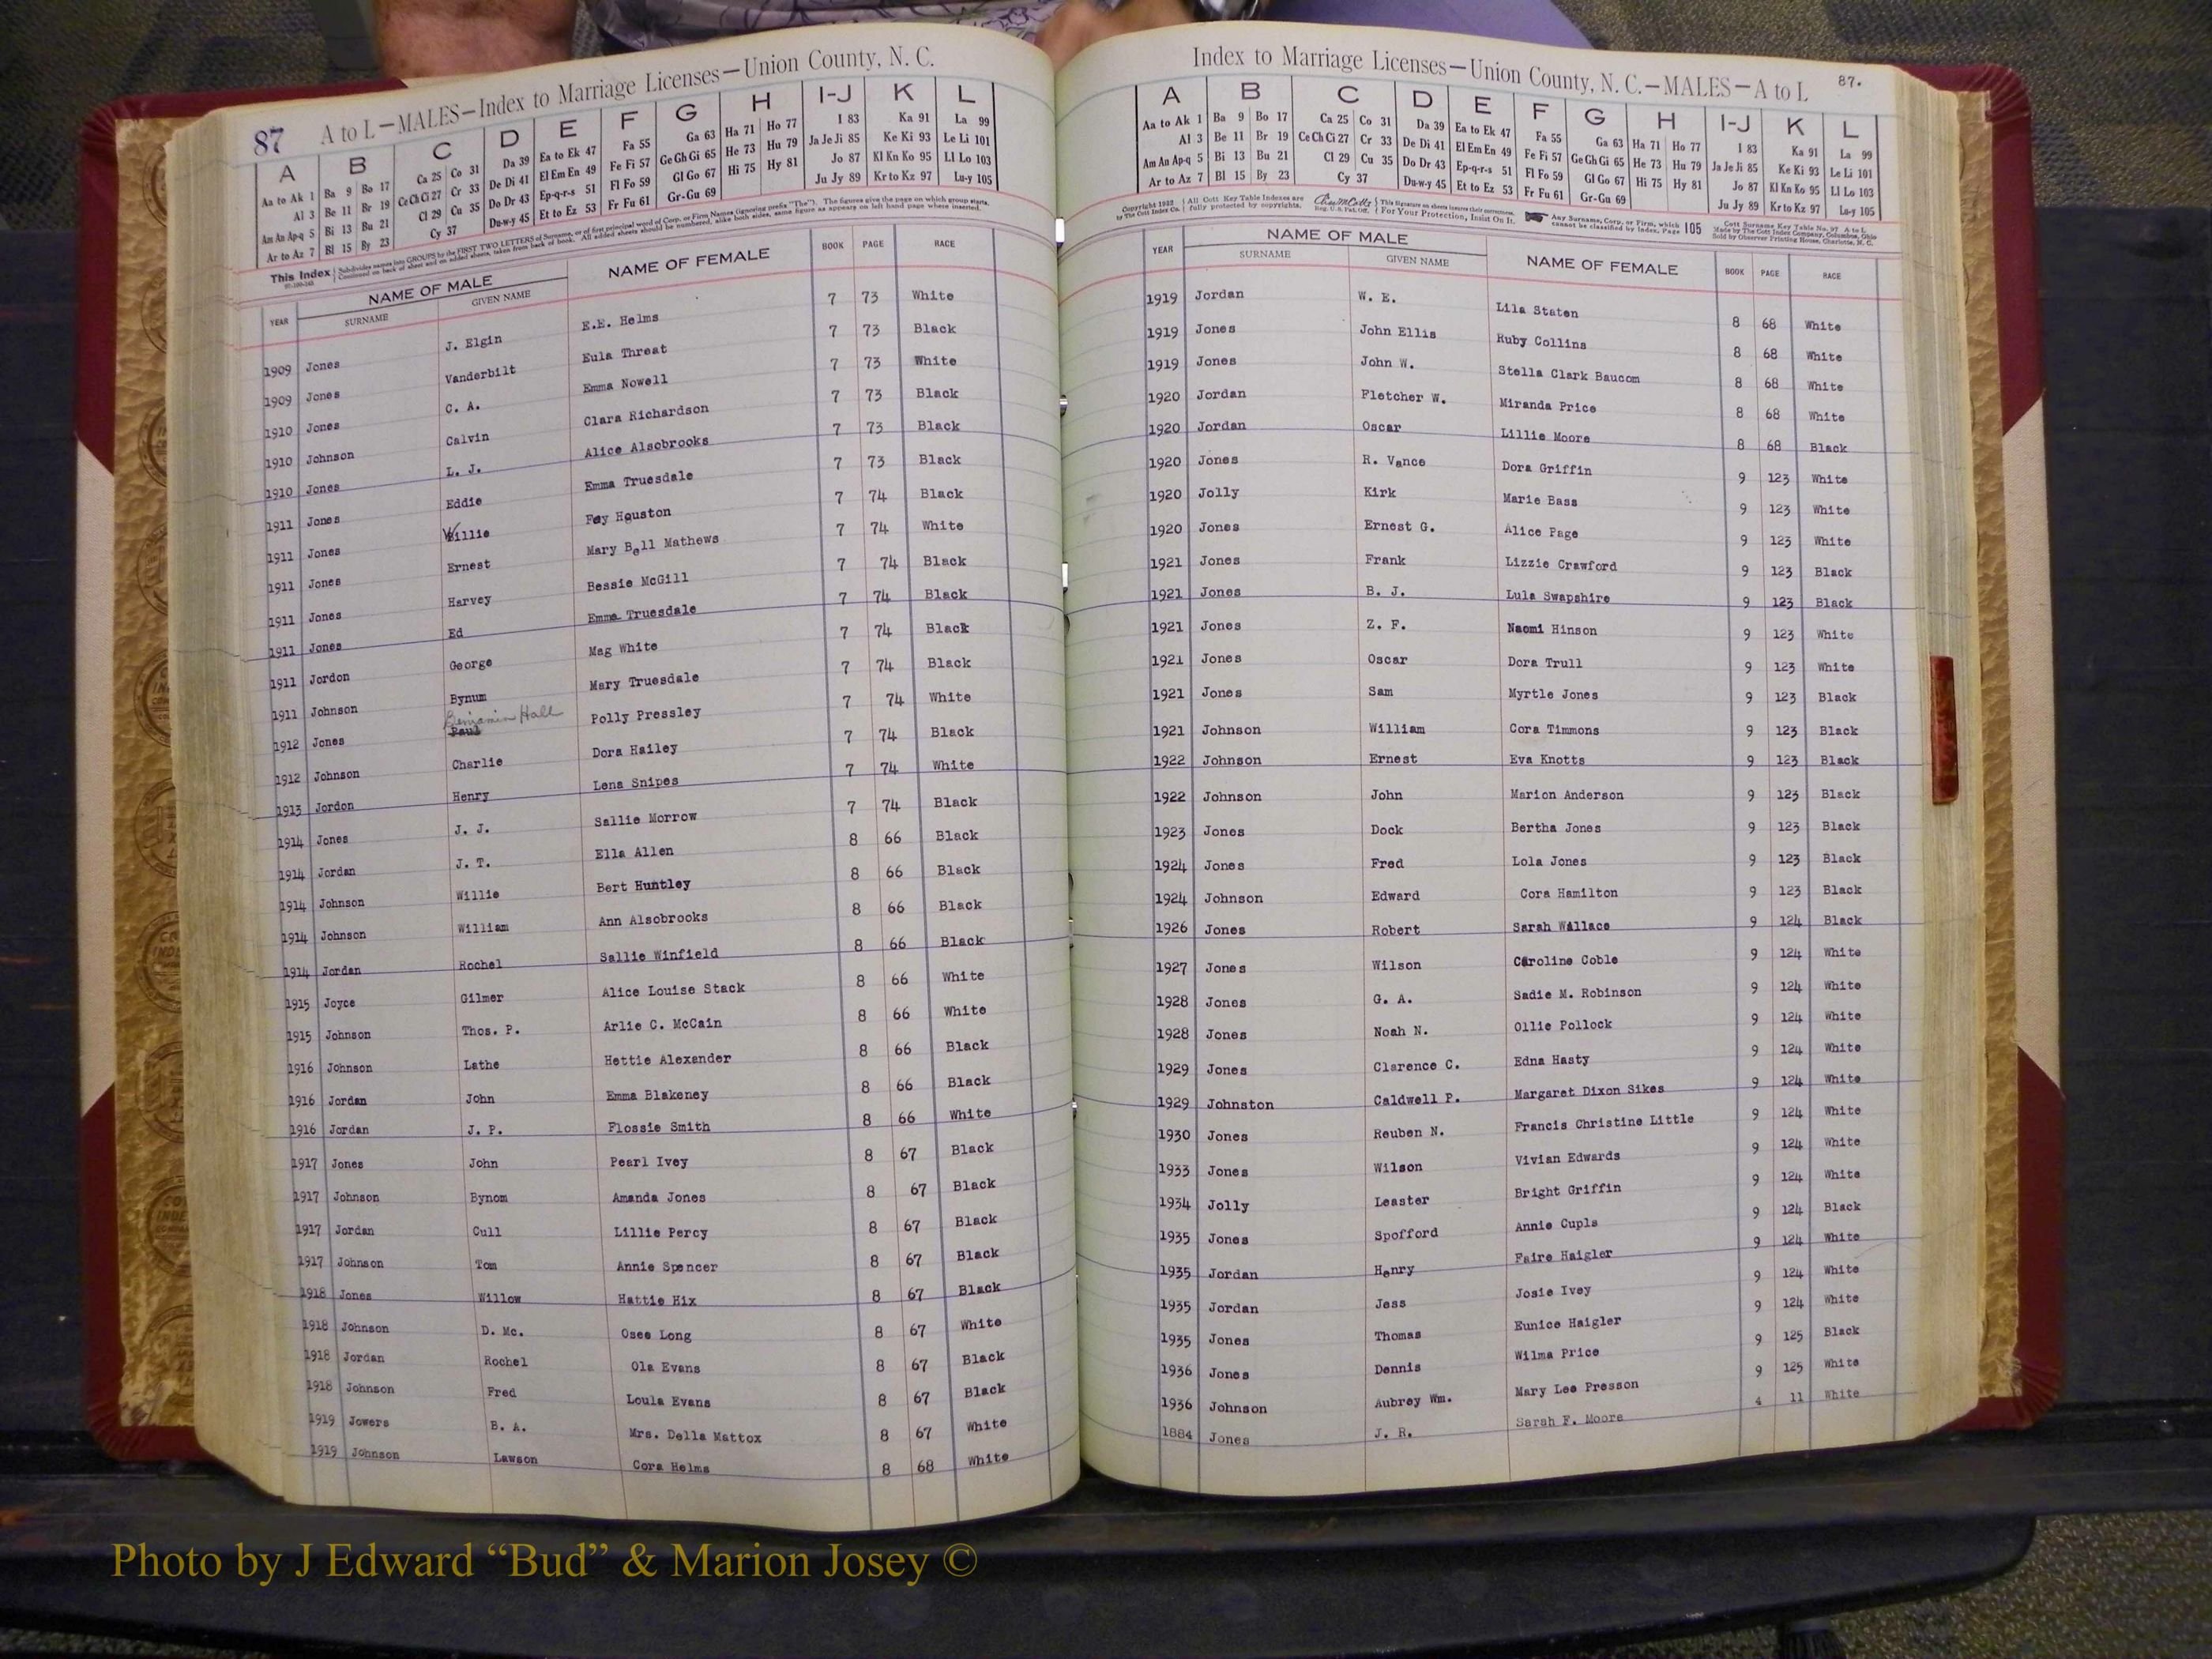 87 A to L—MALES—Index to Marriage Licenses—Union County, N. C.
A B C D E F G H I-J K L
Aa to Ak 1 Ba 9 Bo 17 Ca 25 Co 31 Da 39 Ea to Ek 47 Fa 55 Ga 63 Ha 71 Ho 77 I 83 Ka 91 La 99
Al 3 Be 11 Br 19 Ce Ch Ci 27 Cr 33 De Di 41 El Em En 49 Fe Fi 57 Ge Gh Gi 65 He 73 Hu 79 Ja Je Ji 85 Ke Ki 93 Le Li 101
Am An Ap-q 5 Bi 13 Bu 21 Cl 29 Cu 35 Do Dr 43 Ep-q-r-s 51 Fl Fo 59 Gl Go 67 Hi 75 Hy 81 Jo 87 Kl Kn Ko 95 Ll Lo 103
Ar to Az 7 Bl 15 By 23 Cy 37 Du-w-y 45 Et to Ez 53 Fr Fu 61 Gr-Gu 69 Ju Jy 89 Kr to Kz 97 Lu-y 105
This Index Subdivides names into GROUPS by the FIRST TWO LETTERS of Surname, or of first principal word of Corp. or Firm Names (ignoring prefix "The"). The figures give the page on which group starts.
Continued on back of sheet and on added sheets, taken from back of book. All added sheets should be numbered, alike both sides, same figure as appears on left hand page where inserted.
YEAR NAME OF MALE NAME OF FEMALE BOOK PAGE RACE
SURNAME GIVEN NAME
1909 Jones J. Elgin E.E. Helms 7 73 White
1909 Jones Vanderbilt Eula Threat 7 73 Black
1910 Jones C. A. Emma Nowell 7 73 White
1910 Johnson Calvin Clara Richardson 7 73 Black
1910 Jones L. J. Alice Alsobrooks 7 73 Black
1911 Jones Eddie Emma Truesdale 7 73 Black
1911 Jones Willie Fay Houston 7 74 Black
1911 Jones Ernest Mary Bell Mathews 7 74 White
1911 Jones Harvey Bessie McGill 7 74 Black
1911 Jones Ed Emma Truesdale 7 74 Black
1911 Jordon George Mag White 7 74 Black
1911 Johnson Bynum Mary Truesdale 7 74 Black
1912 Jones Benjamin Hall Paul Polly Pressley 7 74 White
1912 Johnson Charlie Dora Hailey 7 74 Black
1913 Jordon Henry Lena Snipes 7 74 White
1914 Jones J. J. Sallie Morrow 7 74 Black
1914 Jordan J. T. Ella Allen 8 66 Black
1914 Johnson Willie Bert Huntley 8 66 Black
1914 Johnson William Ann Alsobrooks 8 66 Black
1914 Jordan Rochel Sallie Winfield 8 66 Black
1915 Joyce Gilmer Alice Louise Stack 8 66 White
1915 Johnson Thos. P. Arlie C. McCain 8 66 White
1916 Johnson Lathe Hettie Alexander 8 66 Black
1916 Jordan John Emma Blakeney 8 66 Black
1916 Jordan J. P. Flossie Smith 8 66 White
1917 Jones John Pearl Ivey 8 67 Black
1917 Johnson Bynom Amanda Jones 8 67 Black
1917 Jordan Cull Lillie Percy 8 67 Black
1917 Johnson Tom Annie Spencer 8 67 Black
1918 Jones Willow Hattie Hix 8 67 Black
1918 Johnson D. Mc. Osee Long 8 67 White
1918 Jordan Rochel Ola Evans 8 67 Black
1918 Johnson Fred Loula Evans 8 67 Black
1919 Jowers B. A. Mrs. Della Mattox 8 67 White
1919 Johnson Lawson Cora Helms 8 68 White
Index to Marriage Licenses—Union County, N. C.—MALES—A to L 87.
A B C D E F G H I-J K L
Aa to Ak 1 Ba 9 Bo 17 Ca 25 Co 31 Da 39 Ea to Ek 47 Fa 55 Ga 63 Ha 71 Ho 77 I 83 Ka 91 La 99
Al 3 Be 11 Br 19 Ce Ch Ci 27 Cr 33 De Di 41 El Em En 49 Fe Fi 57 Ge Gh Gi 65 He 73 Hu 79 Ja Je Ji 85 Ke Ki 93 Le Li 101
Am An Ap-q 5 Bi 13 Bu 21 Cl 29 Cu 35 Do Dr 43 Ep-q-r-s 51 Fl Fo 59 Gl Go 67 Hi 75 Hy 81 Jo 87 Kl Kn Ko 95 Ll Lo 103
Ar to Az 7 Bl 15 By 23 Cy 37 Du-w-y 45 Et to Ez 53 Fr Fu 61 Gr-Gu 69 Ju Jy 89 Kr to Kz 97 Lu-y 105
Copyright 1932 by The Cott Index Co. All Cott Key Table Indexes are fully protected by copyrights. Reg. U.S. Pat. Off. For Your Protection, Insist On It. Any Surname, Corp. or Firm, which cannot be classified by Index, Page 105 Cott Surname Key Table No. 97 A to L
Made by The Cott Index Company, Columbus, Ohio
Sold by Observer Printing House, Charlotte, N. C.
YEAR NAME OF MALE NAME OF FEMALE BOOK PAGE RACE
SURNAME GIVEN NAME
1919 Jordan W. E. Lila Staten 8 68 White
1919 Jones John Ellis Ruby Collins 8 68 White
1919 Jones John W. Stella Clark Baucom 8 68 White
1920 Jordan Fletcher W. Miranda Price 8 68 White
1920 Jordan Oscar Lillie Moore 8 68 Black
1920 Jones R. Vance Dora Griffin 9 123 White
1920 Jolly Kirk Marie Bass 9 123 White
1920 Jones Ernest G. Alice Page 9 123 White
1921 Jones Frank Lizzie Crawford 9 123 Black
1921 Jones B. J. Lula Swapshire 9 123 Black
1921 Jones Z. F. Naomi Hinson 9 123 White
1921 Jones Oscar Dora Trull 9 123 White
1921 Jones Sam Myrtle Jones 9 123 Black
1921 Johnson William Cora Timmons 9 123 Black
1922 Johnson Ernest Eva Knotts 9 123 Black
1922 Johnson John Marion Anderson 9 123 Black
1923 Jones Dock Bertha Jones 9 123 Black
1924 Jones Fred Lola Jones 9 123 Black
1924 Johnson Edward Cora Hamilton 9 123 Black
1926 Jones Robert Sarah Wallace 9 124 Black
1927 Jones Wilson Caroline Coble 9 124 White
1928 Jones G. A. Sadie M. Robinson 9 124 White
1928 Jones Noah N. Ollie Pollock 9 124 White
1929 Jones Clarence C. Edna Hasty 9 124 White
1929 Johnston Caldwell P. Margaret Dixon Sikes 9 124 White
1930 Jones Reuben N. Francis Christine Little 9 124 White
1933 Jones Wilson Vivian Edwards 9 124 White
1934 Jolly Leaster Bright Griffin 9 124 White
1935 Jones Spofford Annie Cupls 9 124 Black
1935 Jordan Henry Faire Haigler 9 124 White
1935 Jordan Jess Josie Ivey 9 124 White
1935 Jones Thomas Eunice Haigler 9 124 White
1936 Jones Dennis Wilma Price 9 125 Black
1936 Johnson Aubrey Wm. Mary Lee Presson 9 125 White
1884 Jones J. R. Sarah F. Moore 4 11 White
Photo by J Edward “Bud” & Marion Josey ©